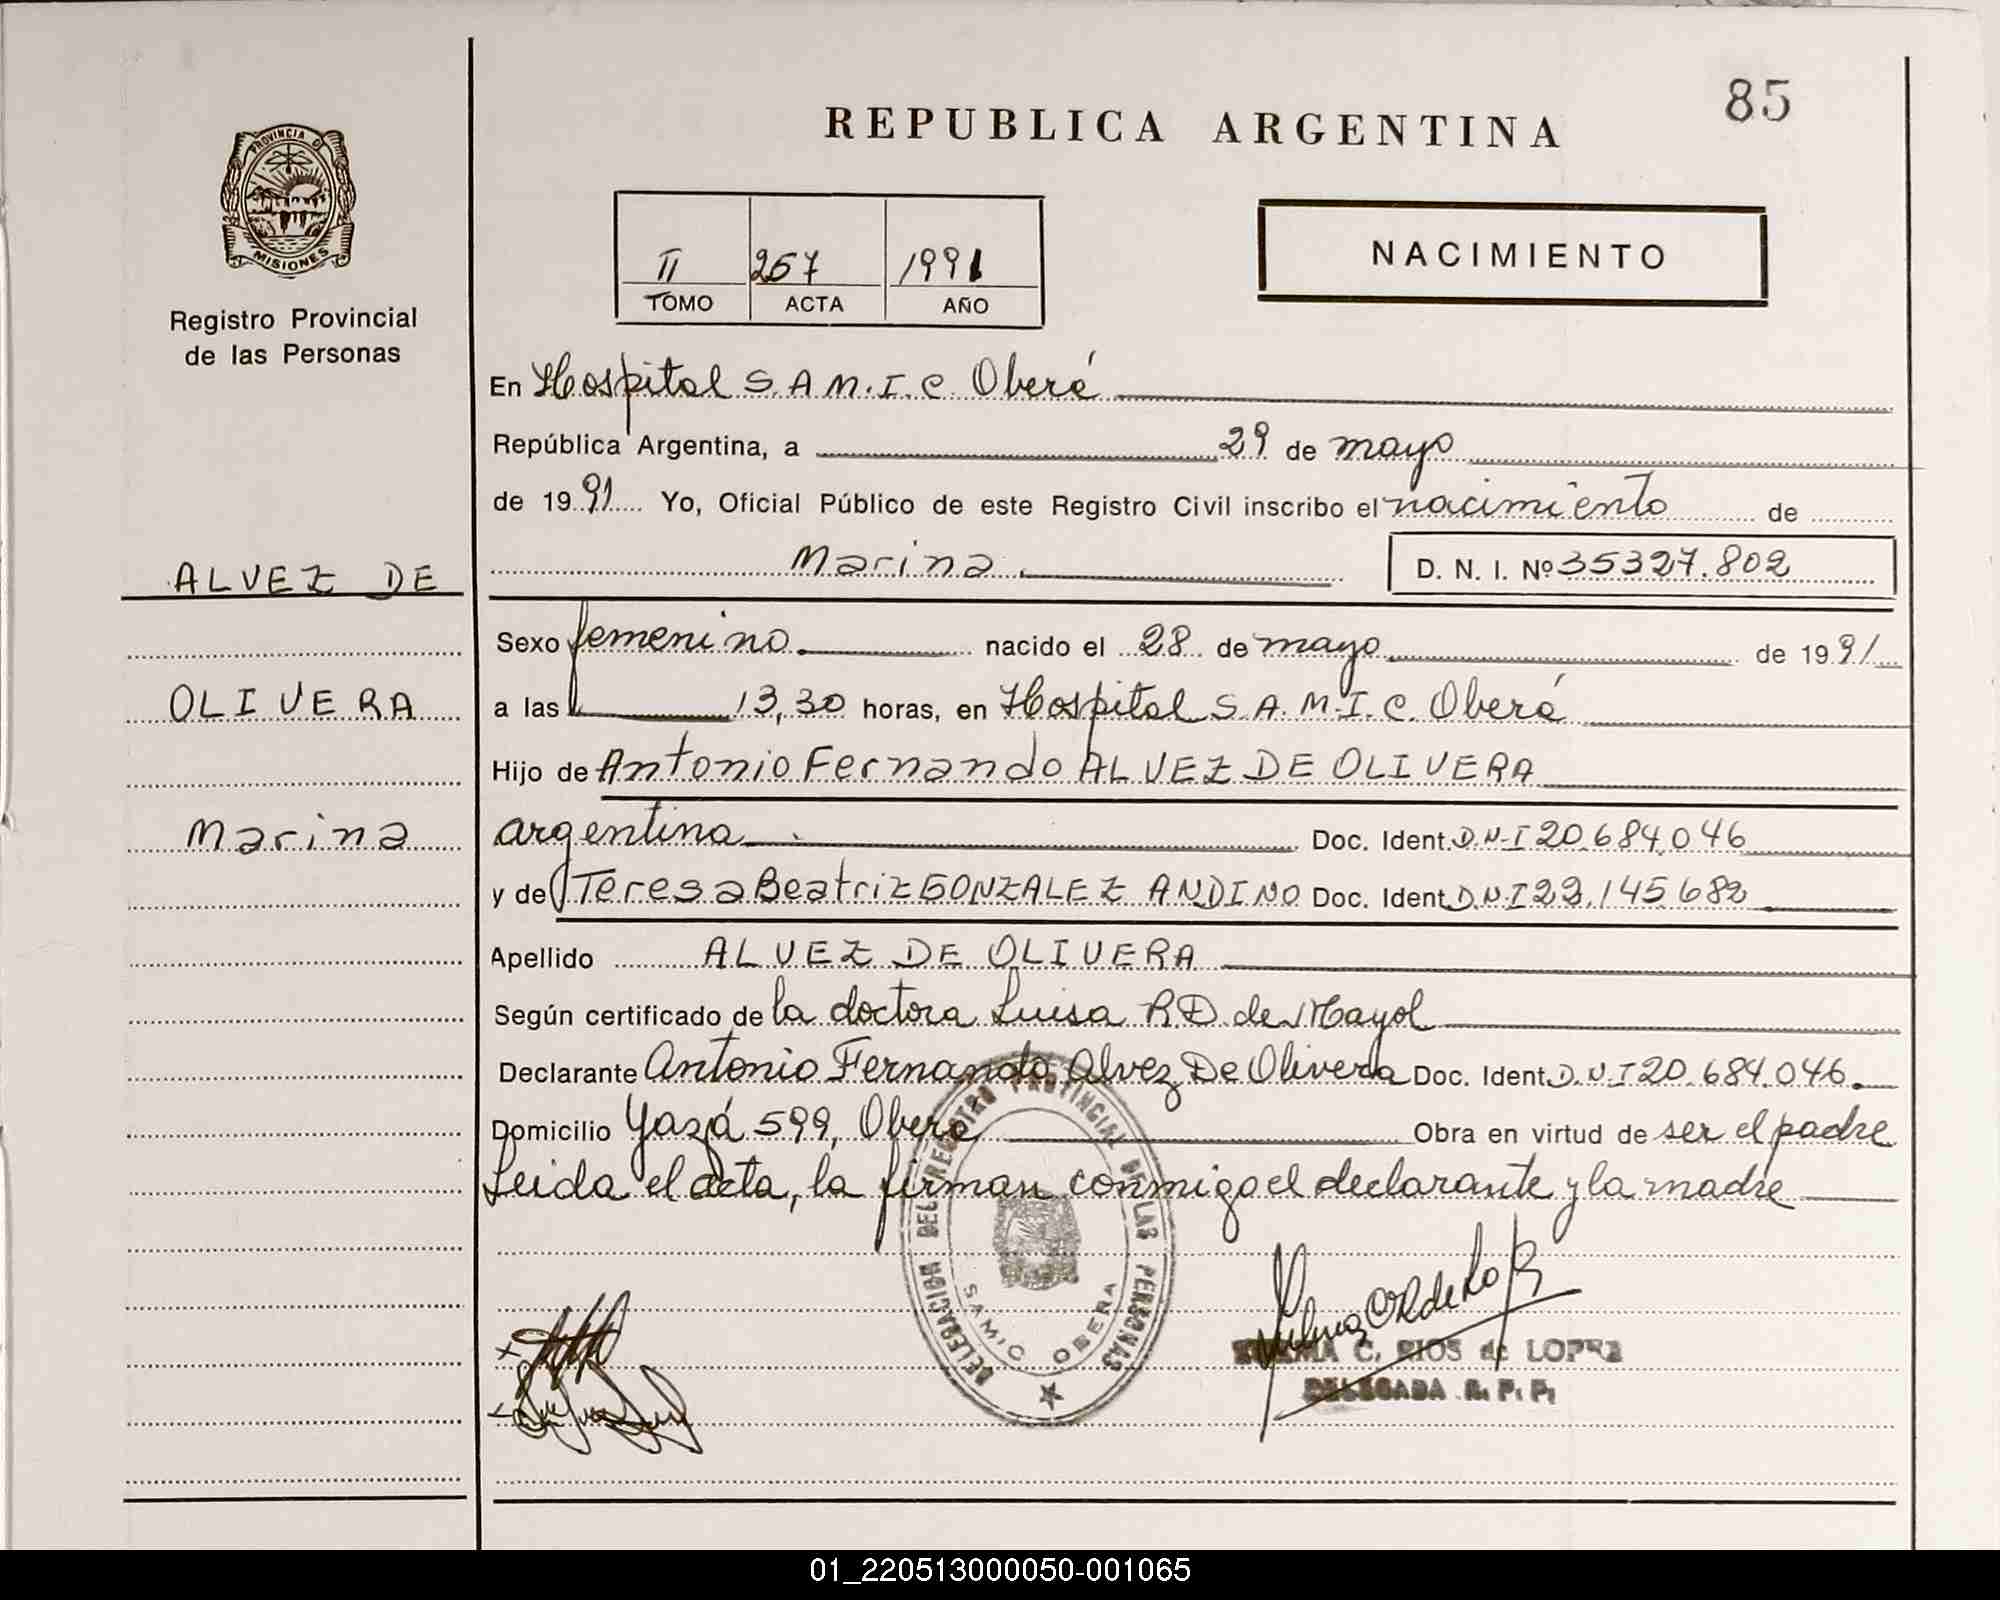 85
REPUBLICA ARGENTINA
PROVINCIA D
MISIONES
Registro Provincial
de las Personas
II 257 1991
TOMO ACTA AÑO
NACIMIENTO
En Hospital S.A.M.I.C. Oberá
República Argentina, a 29 de mayo
de 1991 Yo, Oficial Público de este Registro Civil inscribo el nacimiento de
Marina
D. N. I. Nº 35327.802
ALVEZ DE
OLIVERA
Marina
Sexo femenino nacido el 28 de mayo de 1991
a las 13,30 horas, en Hospital S.A.M.I.C. Oberá
Hijo de Antonio Fernando ALVEZ DE OLIVERA
argentina Doc. Ident. D.N.I 20.684.046
y de Teresa Beatriz GONZALEZ ANDINO Doc. Ident. D.N.I 22.145.682
Apellido ALVEZ DE OLIVERA
Según certificado de la doctora Luisa R.D. de Mayol
Declarante Antonio Fernando Alvez De Olivera Doc. Ident. D.N.I 20.684.046.
Domicilio Yazá 599, Oberá Obra en virtud de ser el padre
Leida el acta, la firman conmigo el declarante y la madre
DELEGACION DEL REGISTRO PROVINCIAL DE LAS PERSONAS
SAMIC OBERA
C. RIOS de LOPEZ
DELEGADA R. P. P.
01_220513000050-001065